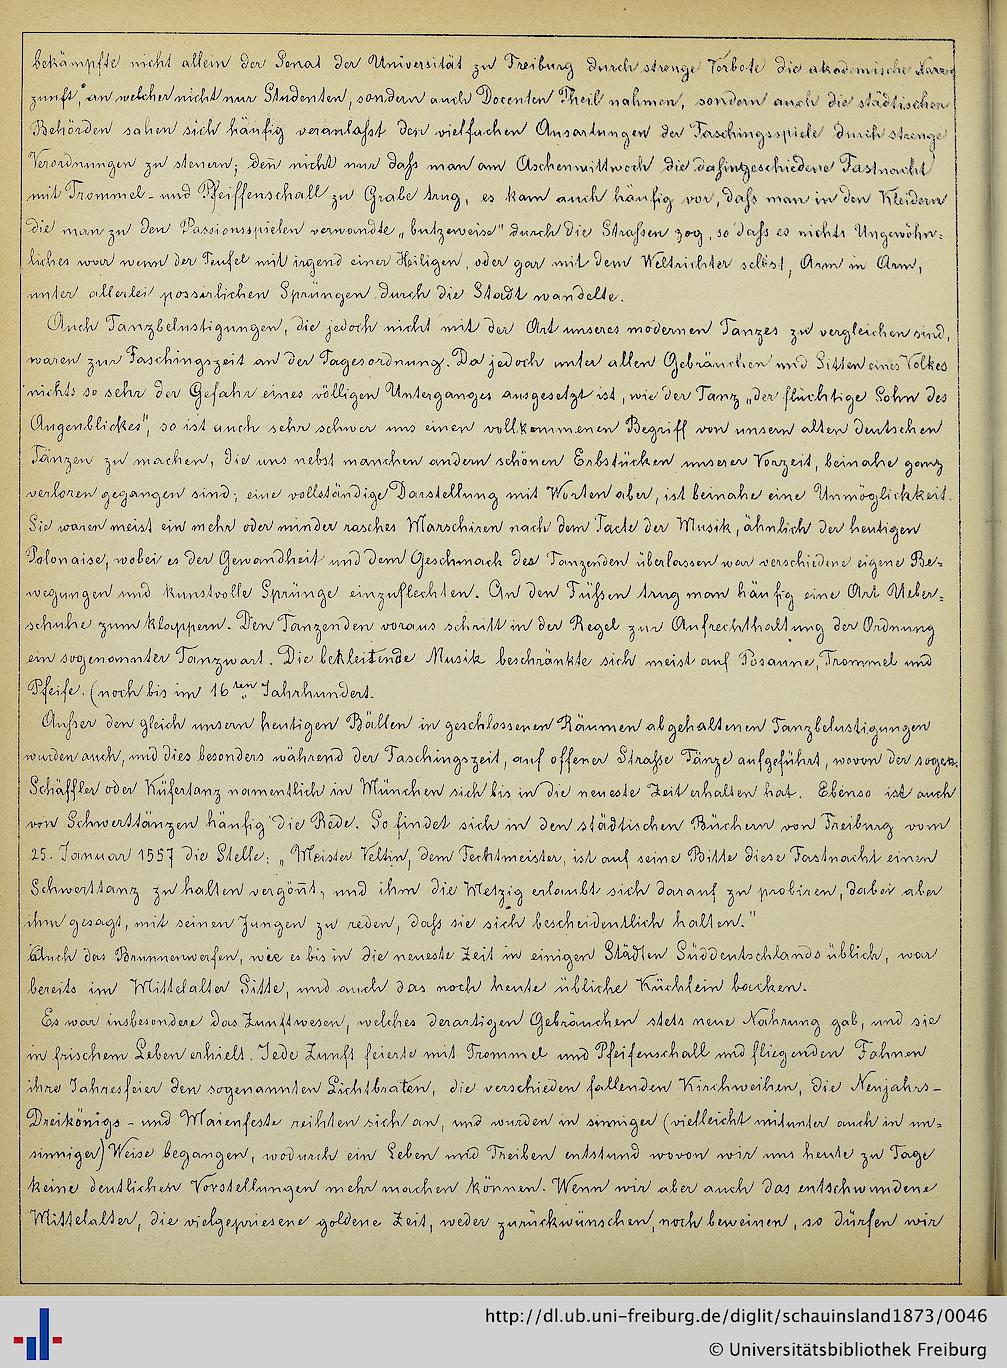 bekämpfte nicht allein der Senat der Universität zu Freiburg durch strenge Verbote die akademische Narren
zunft, an welcher nicht nur Studenten, sondern auch Docenten Theil nahmen, sondern auch die städtischen
Behörden sahen sich häufig veranlaßt den vielfachen Ausartungen der Faschingsspiele durch strenge
Verordnungen zu steuern; den̅ nicht nur daß man am Aschenmittwoch die dahingeschiedene Fastnacht
mit Trommel- und Pfeiffenschall zu Grabe trug, es kam auch häufig vor, daß man in den Kleidern
die man zu den Passionsspielen verwandte „butzeweise" durch die Straßen zog, so daß es nichts Ungewöhn=
liches war wenn der Teufel mit irgend einer Heiligen, oder gar mit dem Weltrichter selbst, Arm in Arm,
unter allerlei possirlichen Sprüngen durch die Stadt wandelte.
Auch Tanzbelustigungen, die jedoch nicht mit der Art unseres modernen Tanzes zu vergleichen sind,
waren zur Faschingszeit an der Tagesordnung. Da jedoch unter allen Gebräuchen und Sitten eines Volkes
nichts so sehr der Gefahr eines völligen Unterganges ausgesetzt ist, wie der Tanz „der flüchtige Sohn des
Augenblickes", so ist auch sehr schwer uns einen vollkommenen Begriff von unsern alten deutschen
Tänzen zu machen, die uns nebst manchen andern schönen Erbstücken unserer Vorzeit, beinahe ganz
verloren gegangen sind; eine vollständige Darstellung mit Worten aber, ist beinahe eine Unmöglichkeit.
Sie waren meist ein mehr oder minder rasches Marschiren nach dem Tacte der Musik, ähnlich der heutigen
Polonaise, wobei es der Gewandheit und dem Geschmack des Tanzenden überlassen war verschiedene eigene Be=
wegungen und kunstvolle Sprünge einzuflechten. An den Füßen trug man häufig eine Art Ueber=
schuhe zum klappern. Den Tanzenden voraus schritt in der Regel zur Aufrechthaltung der Ordnung
ein sogenannter Tanzwart. Die bekleitende Musik beschränkte sich meist auf Posaune, Trommel und
Pfeife. (noch bis im 16ten Jahrhundert.
Außer den gleich unsern heutigen Bällen in geschlossenen Räumen abgehaltenen Tanzbelustigungen
wurden auch, und dies besonders während der Faschingszeit, auf offener Straße Tänze aufgeführt, wovon der sogen.
Schäffler oder Küfertanz namentlich in München sich bis in die neueste Zeit erhalten hat. Ebenso ist auch
von Schwerttänzen häufig die Rede. So findet sich in den städtischen Büchern von Freiburg vom
25. Januar 1557 die Stelle: „Meister Veltin, dem Fechtmeister, ist auf seine Bitte diese Fastnacht einen
Schwerttanz zu halten vergön̅t, und ihm die Metzig erlaubt sich darauf zu probiren, dabei aber
ihm gesagt, mit seinen Jungen zu reden, daß sie sich bescheidentlich halten."
Auch das Brunnenwerfen, wie es bis in die neueste Zeit in einigen Städten Süddeutschlands üblich, war
bereits im Mittelalter Sitte, und auch das noch heute übliche Küchlein backen.
Es war insbesondere das Zunftwesen, welches derartigen Gebräuchen stets neue Nahrung gab, und sie
in frischem Leben erhielt. Jede Zunft feierte mit Trommel und Pfeifenschall und fliegenden Fahnen
ihre Jahresfeier den sogenannten Lichtbraten, die verschieden fallenden Kirchweihen, die Neujahrs-
Dreikönigs- und Maienfeste reihten sich an, und wurden in sinniger (vielleicht mitunter auch in un=
sinniger) Weise begangen, wodurch ein Leben und Treiben entstund wovon wir uns heute zu Tage
keine deutlichen Vorstellungen mehr machen können. Wenn wir aber auch das entschwundene
Mittelalter, die vielgepriesene goldene Zeit, weder zurückwünschen, noch beweinen, so dürfen wir
http://dl.ub.uni-freiburg.de/diglit/schauinsland1873/0046
© Universitätsbibliothek Freiburg